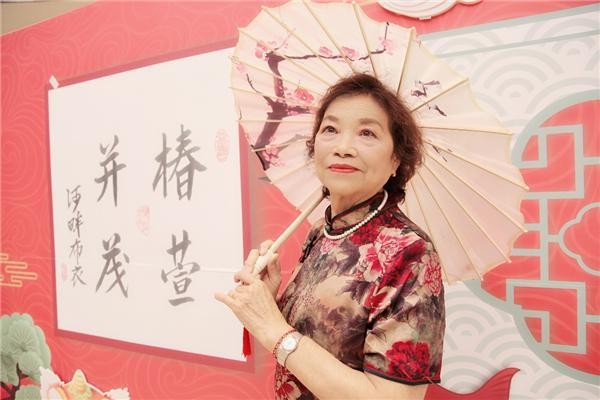 椿萱
并茂
河畔布衣